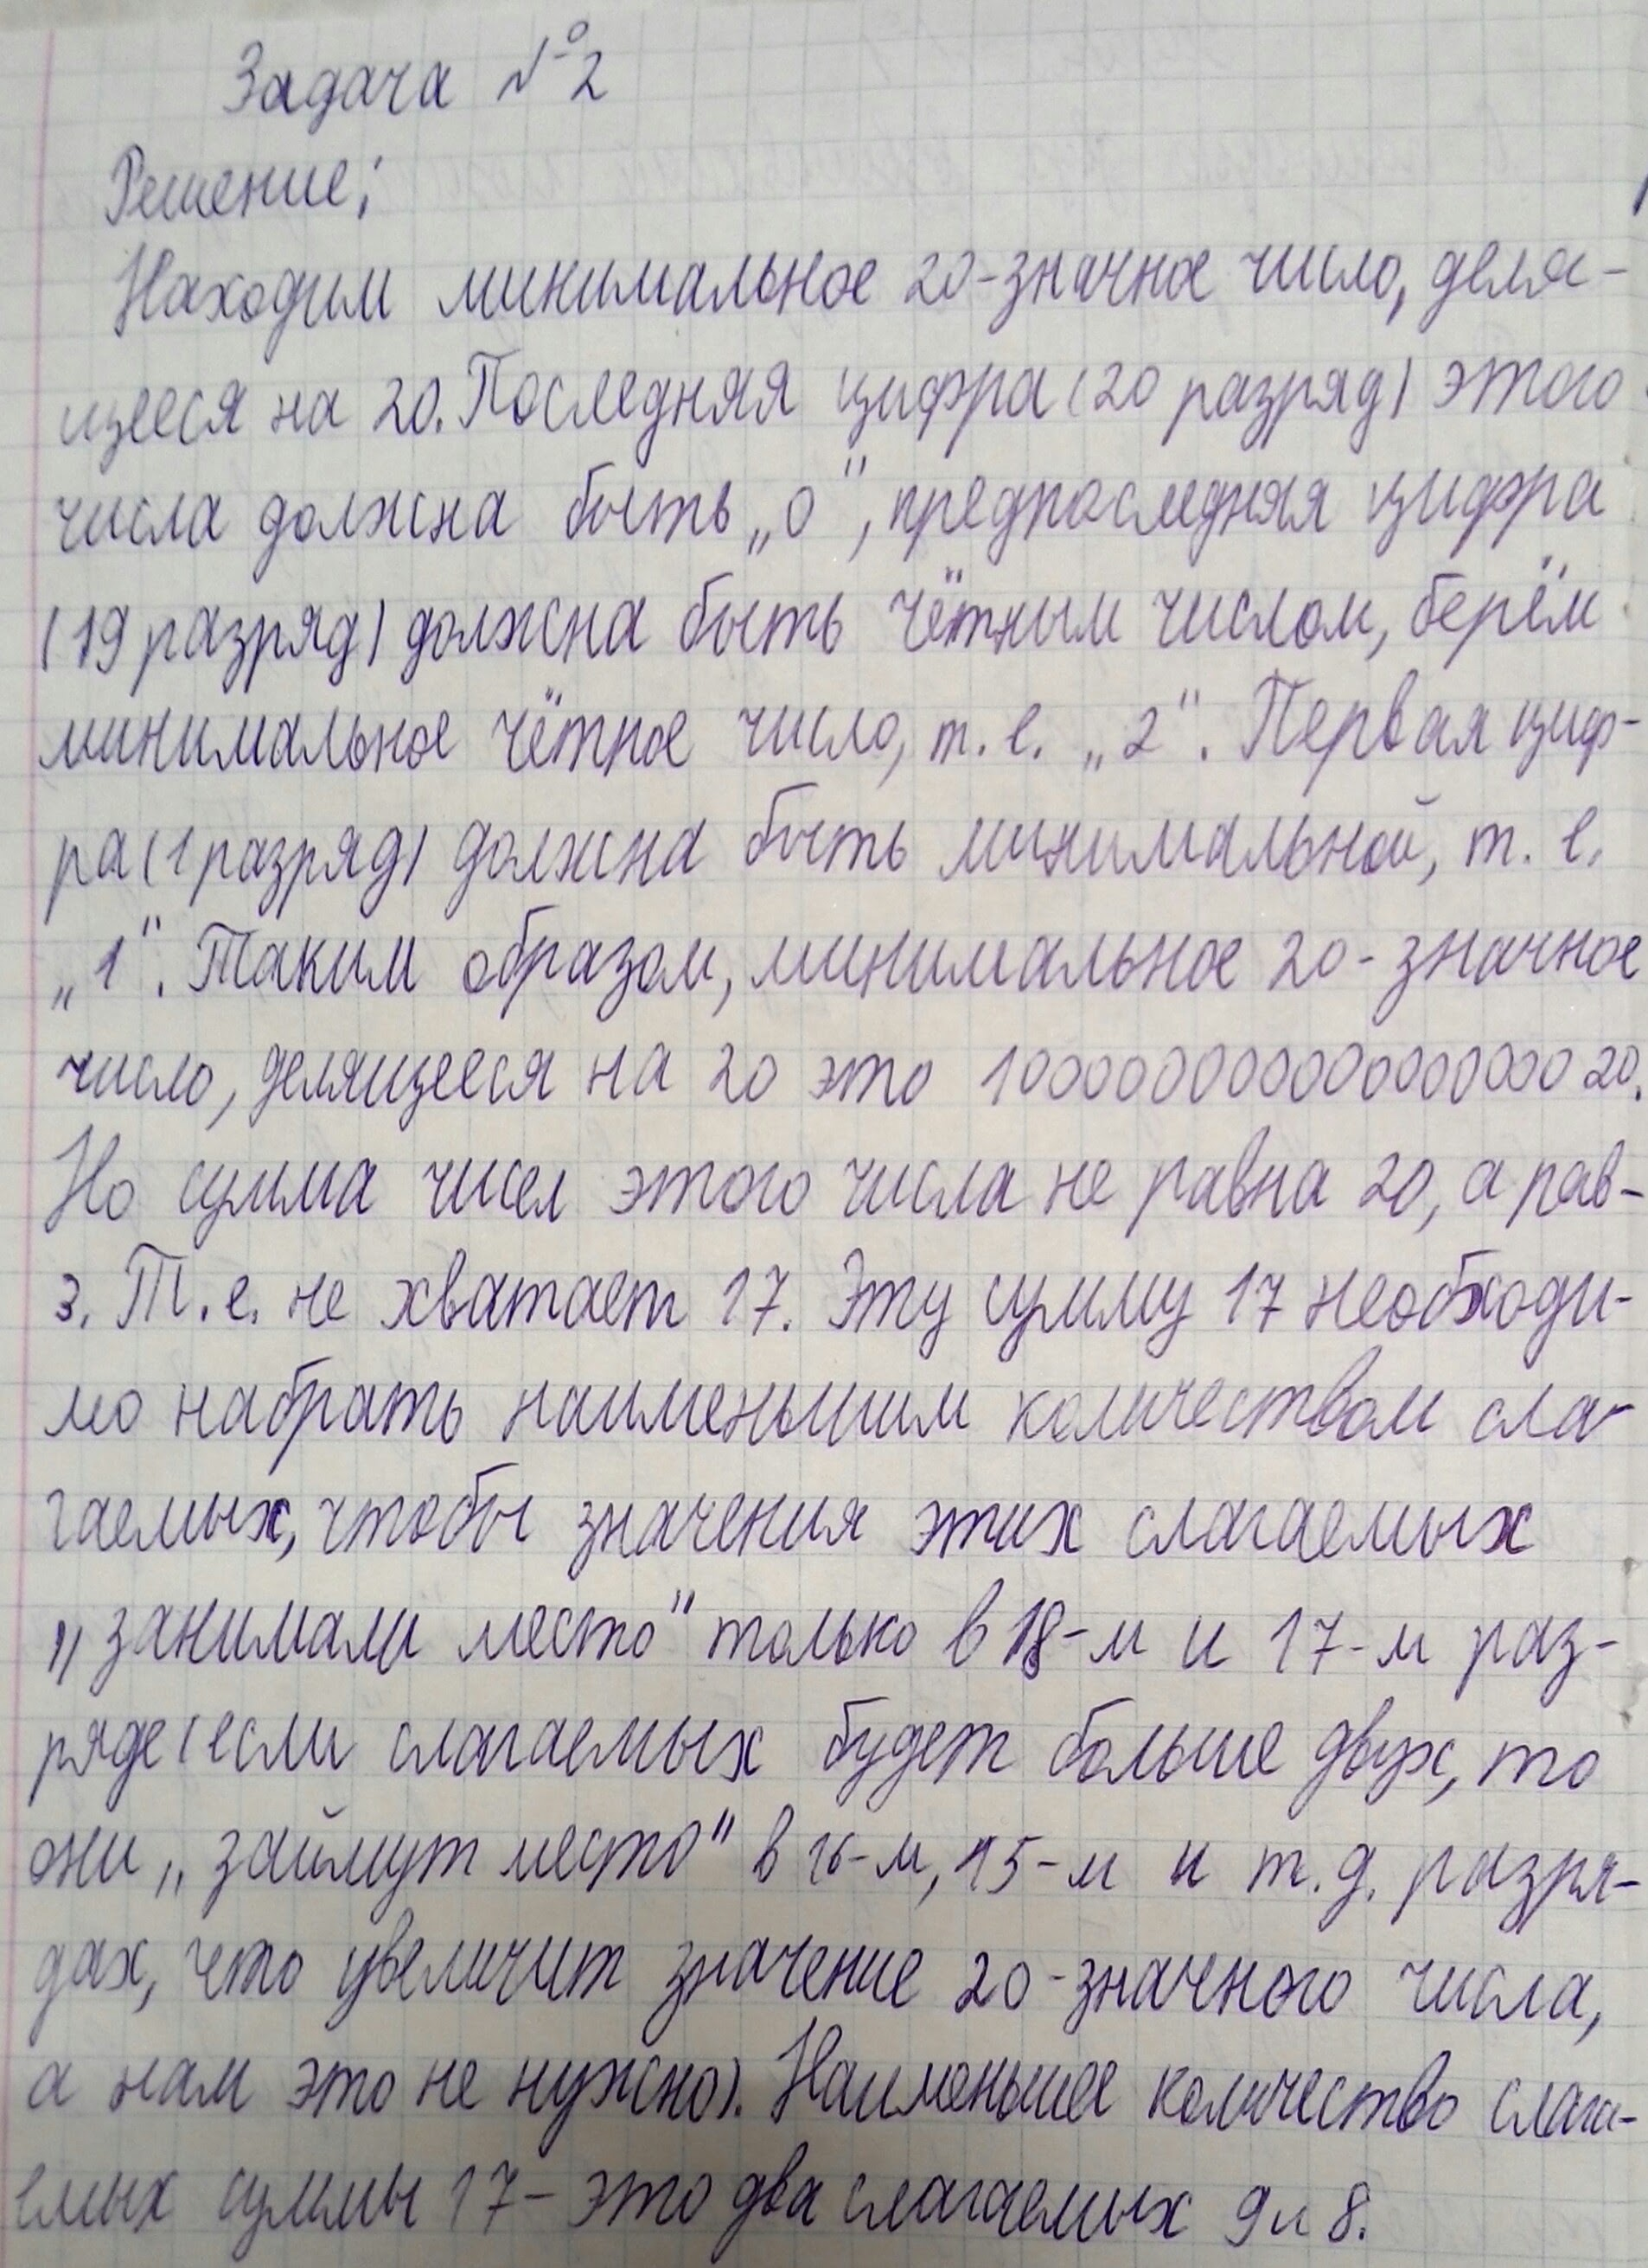 Задача №2
Решение:
Находим минимальное 20-значное число, деля-
щееся на 20. Последняя цифра (20 разряд) этого
числа должна быть „0", предпоследняя цифра
(19 разряд) должна быть чётным числом, берём
минимальное чётное число, т. е. „2". Первая циф-
ра (1 разряд) должна быть минимальной, т. е.
„1". Таким образом, минимальное 20-значное
число, делящееся на 20 это 10000000000000000020.
Но сумма чисел этого числа не равна 20, а рав-
3. Т. е. не хватает 17. Эту сумму 17 необходи-
мо набрать наименьшим количеством сла-
гаемых, чтобы значения этих слагаемых
„занимали место" только в 18-м и 17-м раз-
ряде (если слагаемых будет больше двух, то
они „займут место" в 16-м, 15-м и т. д. разря-
дах, что увеличит значение 20-значного числа,
а нам это не нужно). Наименьшее количество слага-
емых суммы 17 - это два слагаемых 9 и 8.